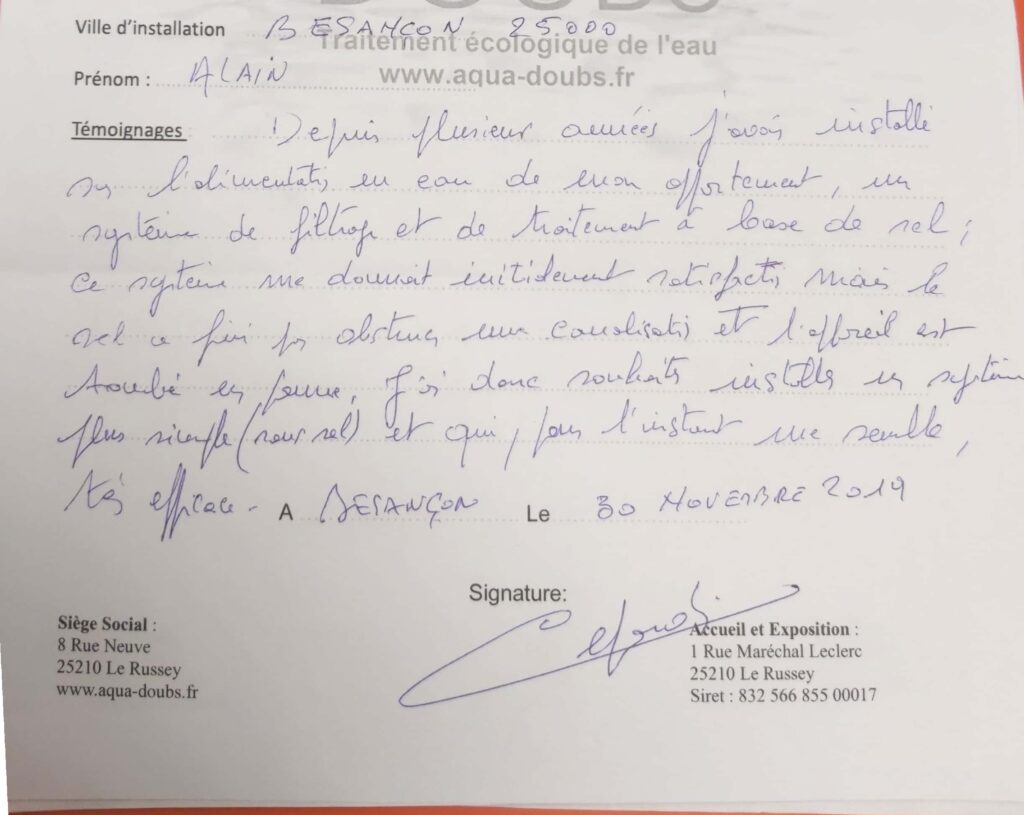 DOUBS
Ville d'installation BESANÇON 25000
Traitement écologique de l'eau
Prénom : ALAIN
www.aqua-doubs.fr
Témoignages Depuis plusieur années j'avais installé
sur l'alimentation en eau de mon appartement, un
système de filtrage et de traitement à base de sel ;
ce système me donnait initialement satisfaction mais le
sel a fini par obstruer une canalisation et l'appareil est
tombé en panne. J'ai donc souhaité installer un système
plus simple (sans sel) et qui, pour l'instant me semble,
très efficace. A BESANÇON Le 30 NOVEMBRE 2019
Signature:
Siège Social :
8 Rue Neuve
25210 Le Russey
www.aqua-doubs.fr
Accueil et Exposition :
1 Rue Maréchal Leclerc
25210 Le Russey
Siret : 832 566 855 00017